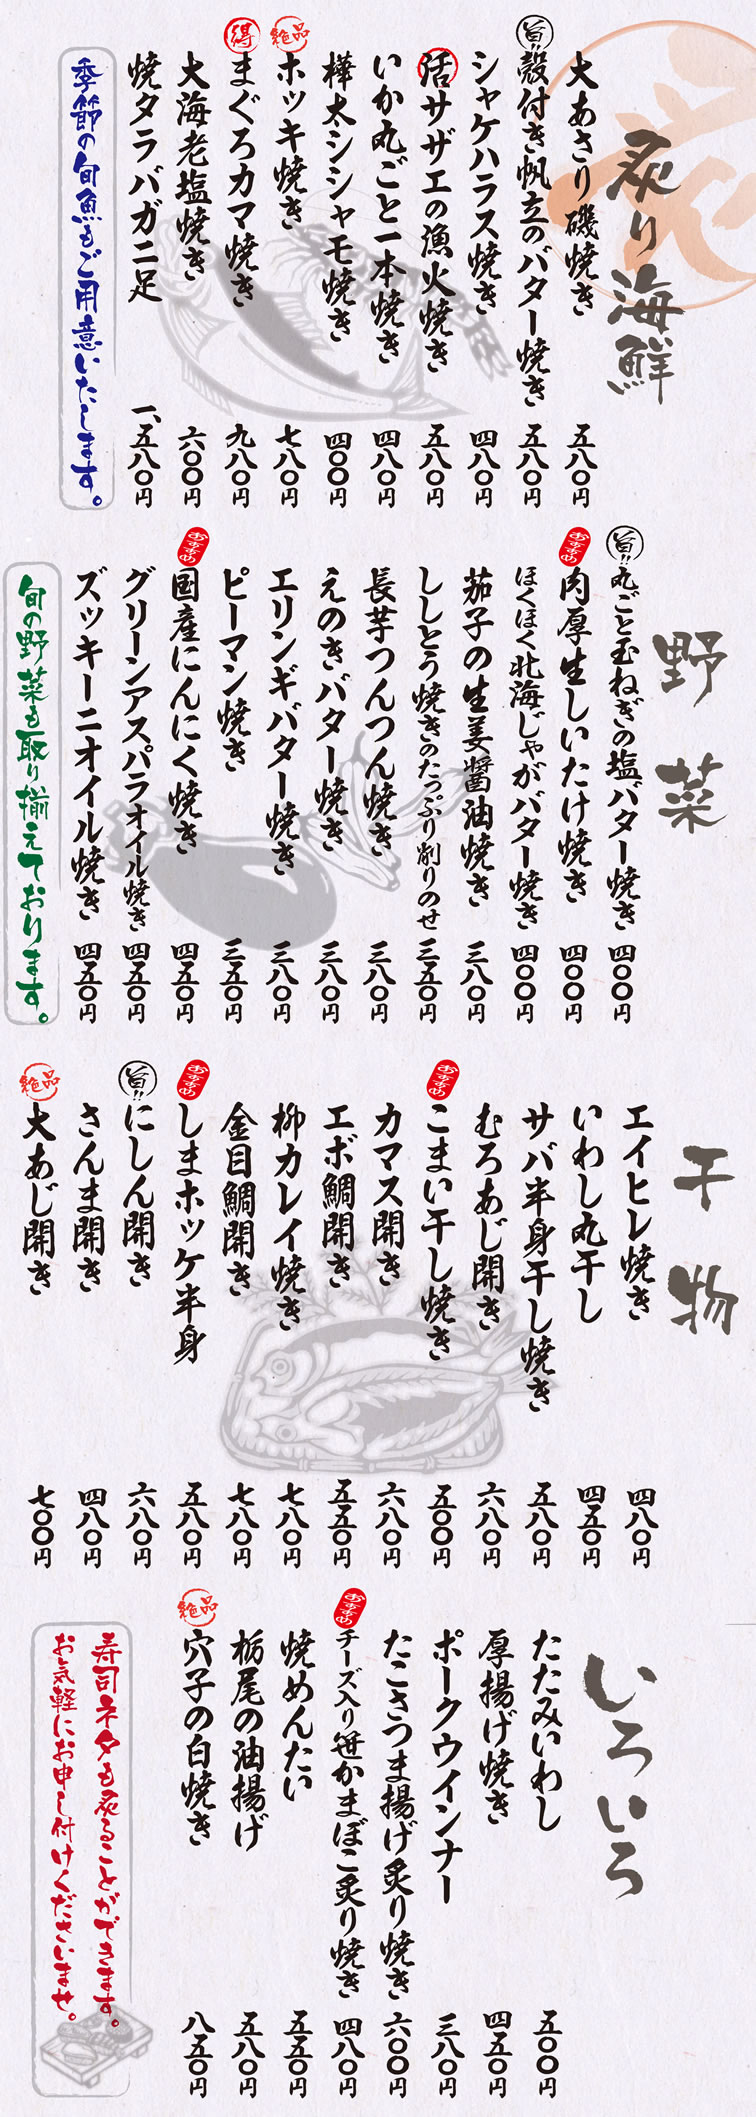 炙り海鮮
大あさり磯焼き 五八〇円
旨!!殻付き帆立のバター焼き 五八〇円
シャケハラス焼き 四八〇円
活サザエの漁火焼き 五八〇円
いか丸ごと一本焼き 四八〇円
樺太シシャモ焼き 四〇〇円
絶品 ホッキ焼き 七八〇円
得 まぐろカマ焼き 九八〇円
大海老塩焼き 六〇〇円
焼タラバガニ足 一、五八〇円
季節の旬魚もご用意いたします。
野菜
旨!!丸ごと玉ねぎの塩バター焼き 四〇〇円
おすすめ 肉厚生しいたけ焼き 四〇〇円
ほくほく北海じゃがバター焼き 四〇〇円
茄子の生姜醤油焼き 三八〇円
ししとう焼きのたっぷり削りのせ 三五〇円
長芋つんつん焼き 三八〇円
えのきバター焼き 三八〇円
エリンギバター焼き 三八〇円
ピーマン焼き 三五〇円
おすすめ 国産にんにく焼き 四五〇円
グリーンアスパラオイル焼き 四五〇円
ズッキーニオイル焼き 四五〇円
旬の野菜も取り揃えております。
干物
エイヒレ焼き 四八〇円
いわし丸干し 四五〇円
サバ半身干し焼き 五八〇円
むろあじ開き 六八〇円
おすすめ こまい干し焼き 五〇〇円
カマス開き 六八〇円
エボ鯛開き 五五〇円
柳カレイ焼き 七八〇円
金目鯛開き 七八〇円
おすすめ しまホッケ半身 五八〇円
旨!! にしん開き 六八〇円
さんま開き 四八〇円
絶品 大あじ開き 七〇〇円
いろいろ
たたみいわし 五〇〇円
厚揚げ焼き 四五〇円
ポークウインナー 三八〇円
たこさつま揚げ炙り焼き 六〇〇円
おすすめ チーズ入り笹かまぼこ炙り焼き 四八〇円
焼めんたい 五五〇円
栃尾の油揚げ 五八〇円
絶品 穴子の白焼き 八五〇円
寿司ネタも炙ることができます。
お気軽にお申し付けくださいませ。